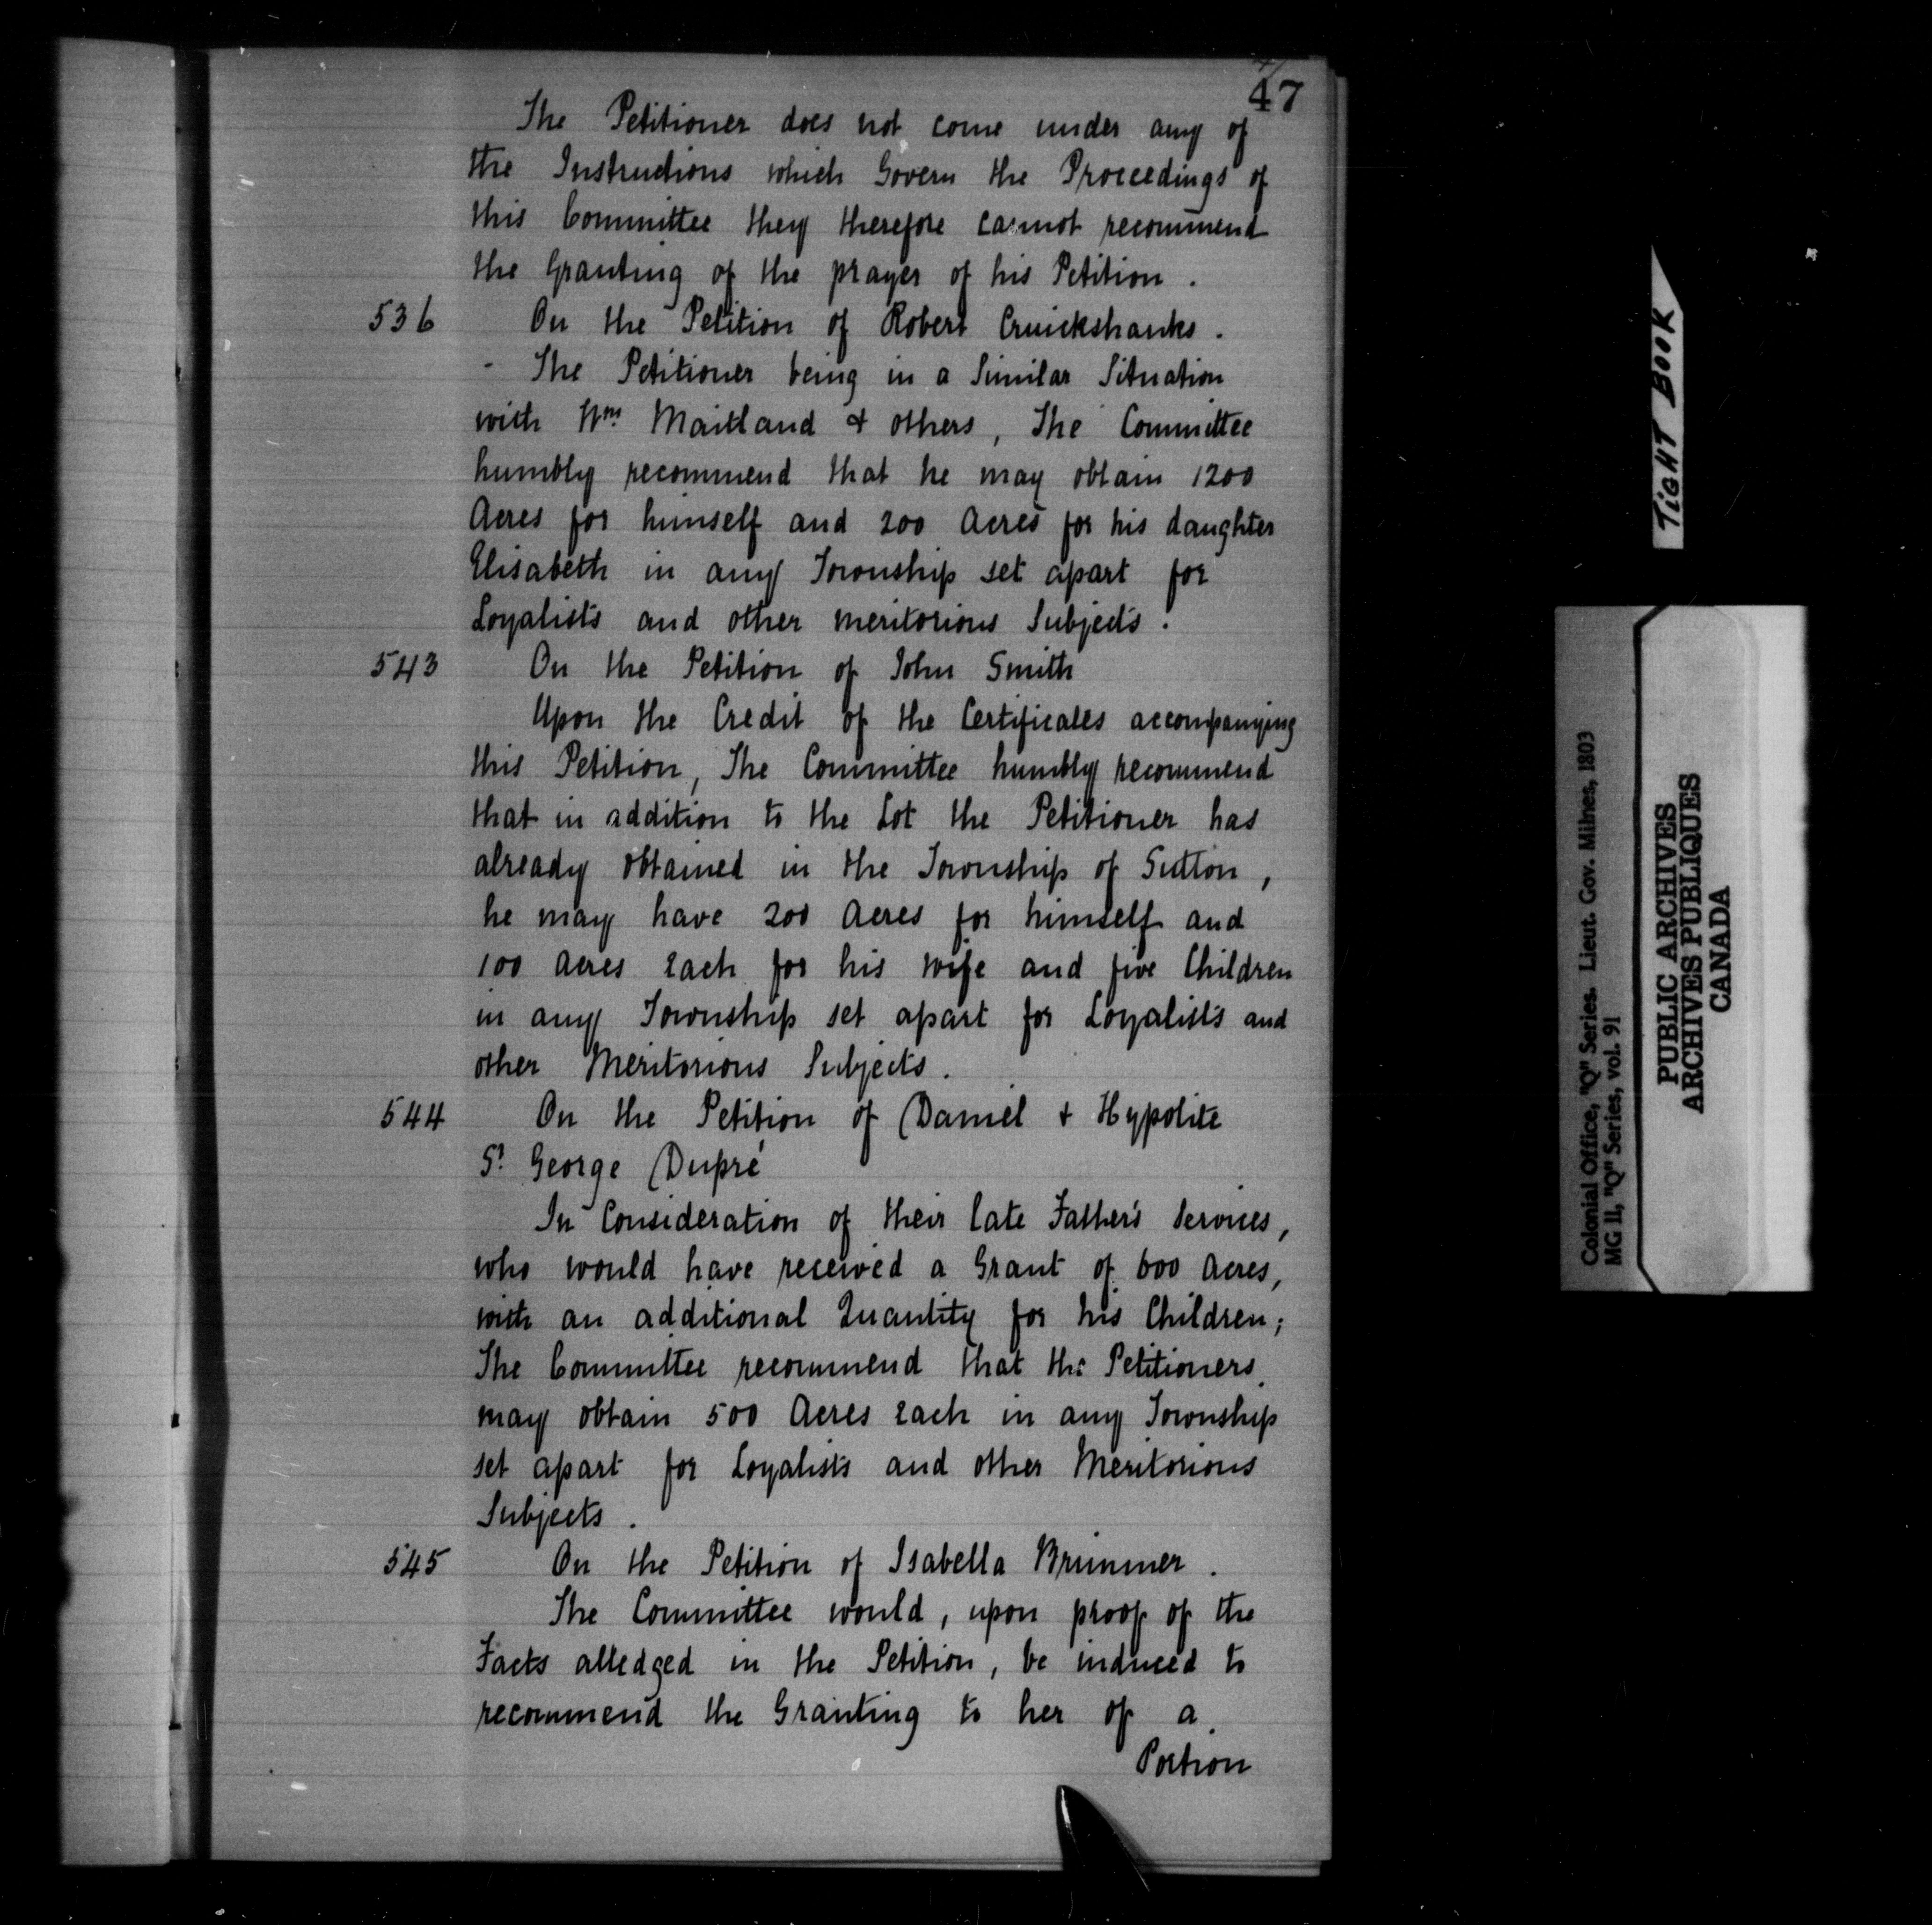 47
The Petitioner does not come under any of
the Instructions which Govern the Proceedings of
this Committee they therefore cannot recommend
the Granting of the prayer of his Petition .
536 On the Petition of Robert Cruickshanks .
- The Petitioner being in a Similar Situation
with Wm. Maitland & others, The Committee
humbly recommend that he may obtain 1200
Acres for himself and 200 Acres for his daughter
Elisabeth in any Township set apart for
Loyalists and other meritorious Subjects .
543 On the Petition of John Smith
Upon the Credit of the Certificates accompanying
this Petition, The Committee humbly recommend
that in addition to the Lot the Petitioner has
already obtained in the Township of Sutton,
he may have 200 Acres for himself and
100 acres each for his wife and five Children
in any Township set apart for Loyalists and
other Meritorious Subjects .
544 On the Petition of Daniel & Hypolite
St. George Dupré
In Consideration of their late Father's Services,
who would have received a Grant of 600 Acres,
with an additional Quantity for his Children;
The Committee recommend that the Petitioners
may obtain 500 Acres each in any Township
set apart for Loyalists and other Meritorious
Subjects .
545 On the Petition of Isabella Brimmer .
The Committee would, upon proof of the
Facts alledged in the Petition, be induced to
recommend the Granting to her of a
Portion
TIGHT BOOK
Colonial Office, "Q" Series. Lieut. Gov. Milnes, 1803
MG 11, "Q" Series, vol. 91
PUBLIC ARCHIVES
ARCHIVES PUBLIQUES
CANADA